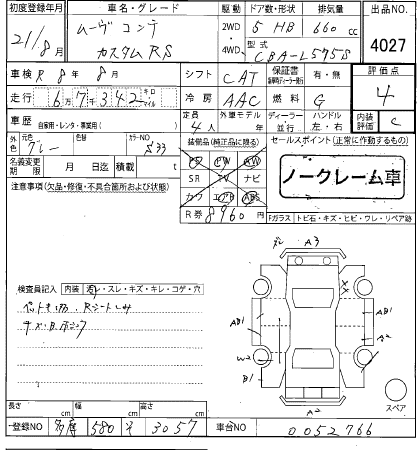 初度登録年月 車名・グレード 駆動 ドア数・形状 排気量 出品NO.
21/8月 ムーヴ コンテ カスタム RS 2WD・4WD 5 HB 660 cc 4027
型式 CBA-L575S
車検 R8年8月 シフト CAT 保証書 有・無 評価点 4
走行 67342 キロ マイル 冷房 AAC 燃料 G 内装評価 C
車歴 自家用・レンタ・事業用 定員 4人 外車モデル 年 ディーラー・並行 ハンドル 左・右
外色 元色 グレー 色替 カラーNO S33 装備品(純正品に限る) セールスポイント(正常に作動するもの)
名義変更期限 月 日迄 積載 t PS PW AW
SR TV ナビ ノークレーム車
注意事項(欠品・修復・不具合箇所および状態) カワ エアB ABS
R券 8960 Fガラス トビ石・キズ・ヒビ・ワレ・リペア跡
A3
検査員記入 内装 汚レ・スレ・キズ・キレ・コゲ・穴
AB1 AB1
A2
W2
B1 B1
A2
スペア
長さ cm 幅 cm 高さ cm
登録NO 多摩 580 そ 3057 車台NO 0052766